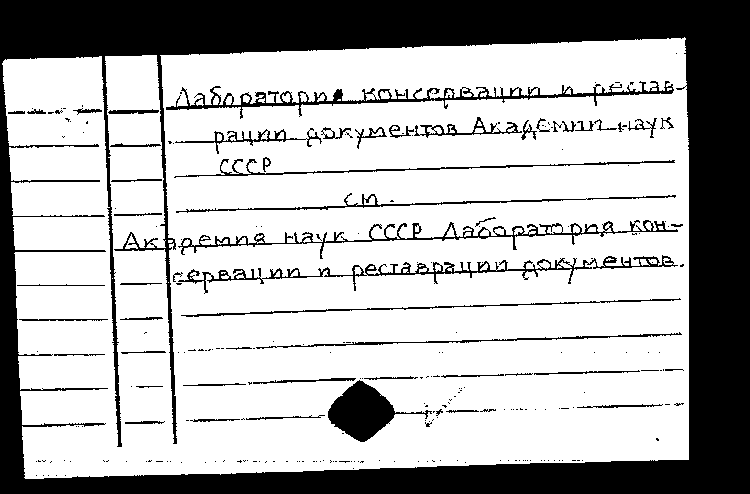 Лаборатория консервации и рестав-
рации документов Академии наук
СССР
см.
Академия наук СССР Лаборатория кон-
сервации и реставрации документов.